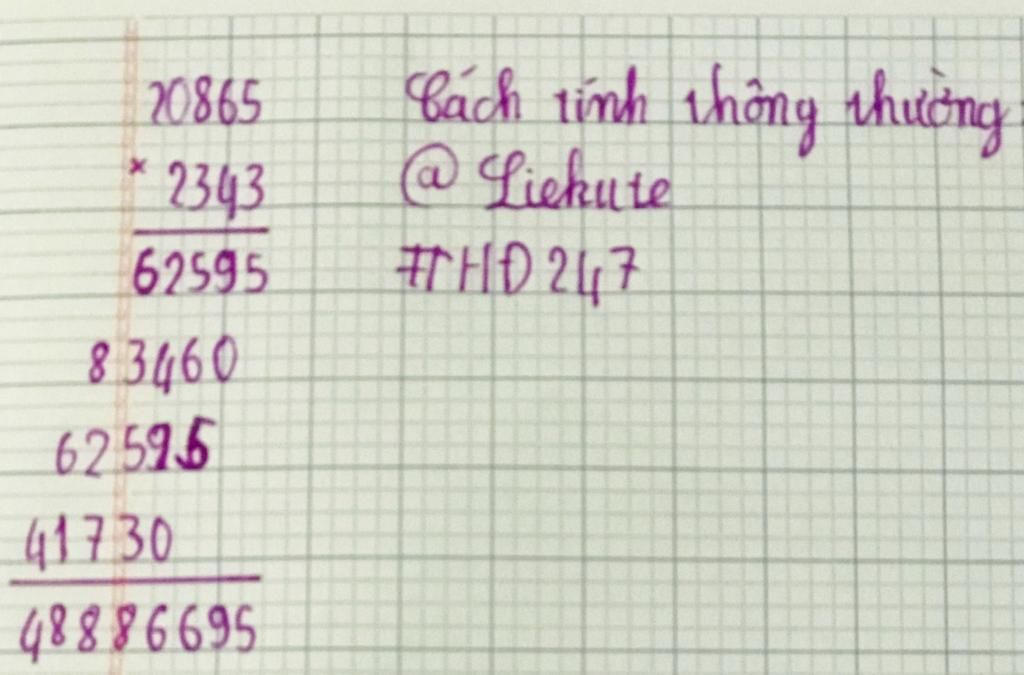 20865 Cách tính thông thường
× 2343 @ Liekute
62595 #HD247
83460
62595
41730
48886695